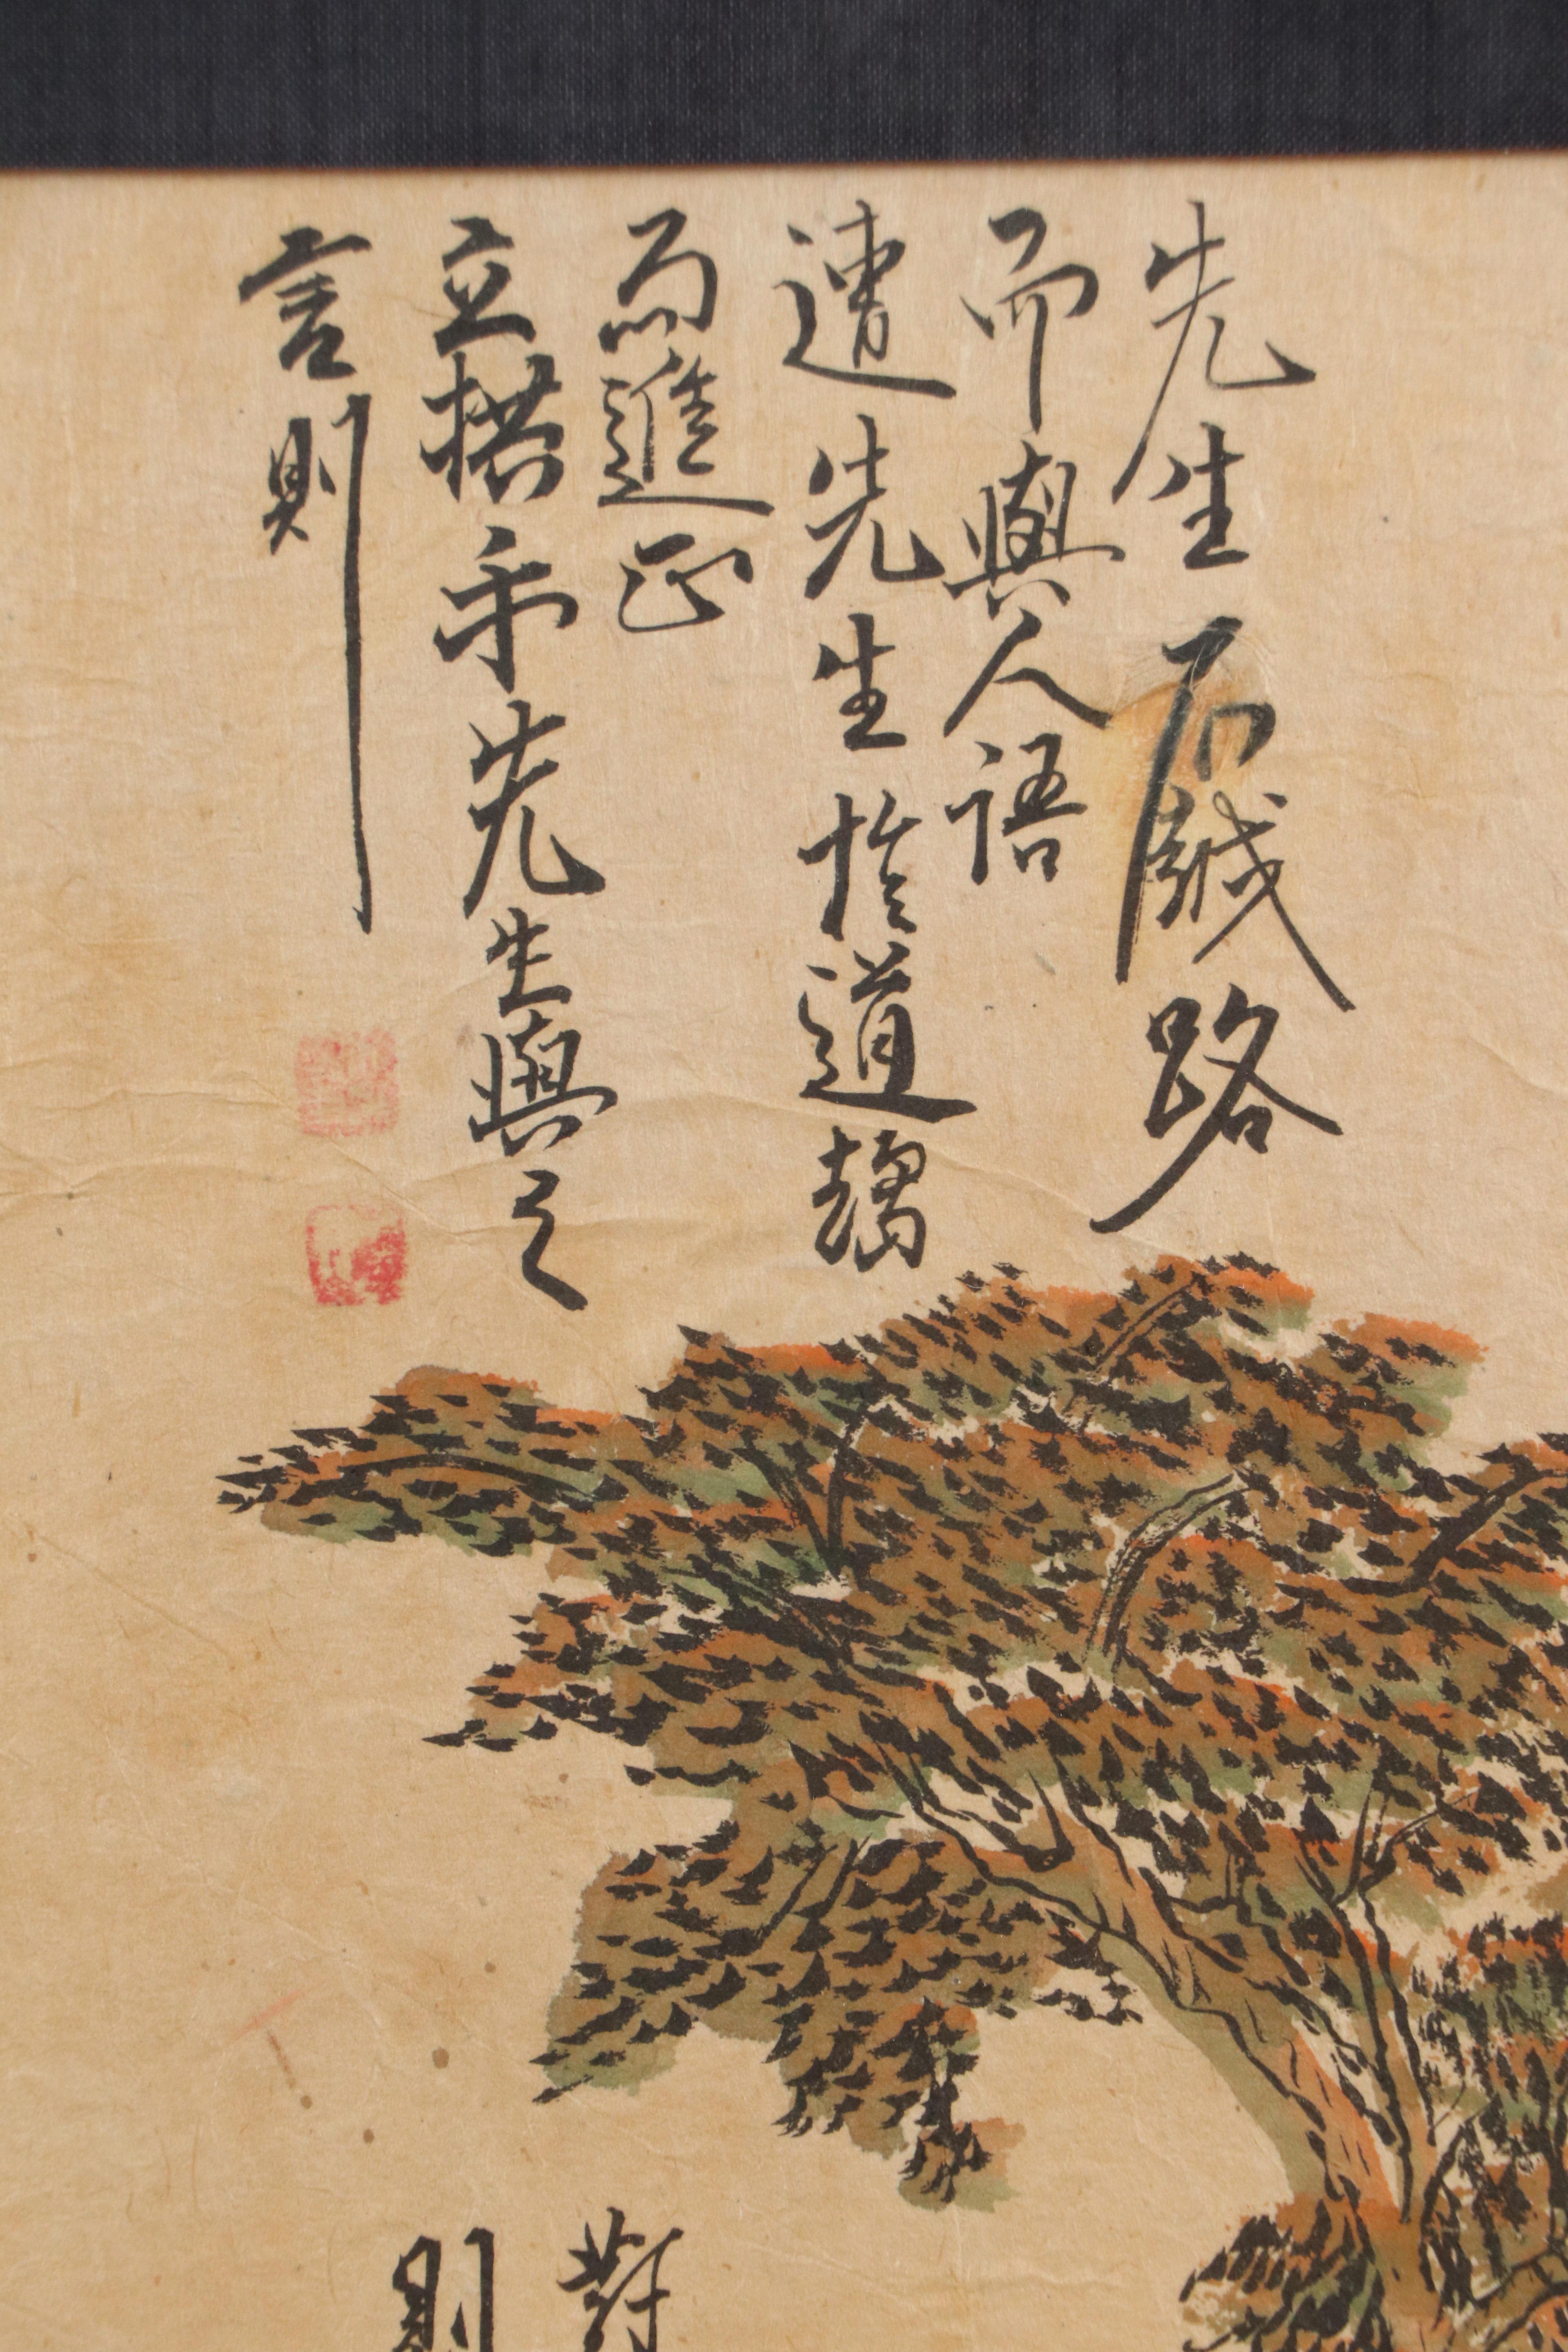 先生
路
而與人語
遭先生於道趨
而進正
立拱手先生與之
言則
對
則